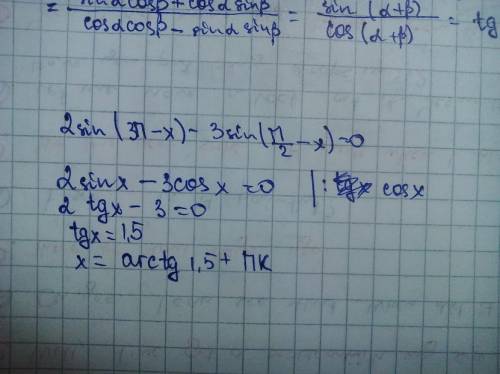 = sinαcosβ + cosαsinβ / cosαcosβ - sinαsinβ = sin (α+β) / cos (α+β) = tg
2sin (3π-x) - 3sin(π/2 - x)=0
2sinx - 3cosx =0 |: cosx
2 tgx - 3 =0
tgx = 1,5
x = arctg 1,5 + πк